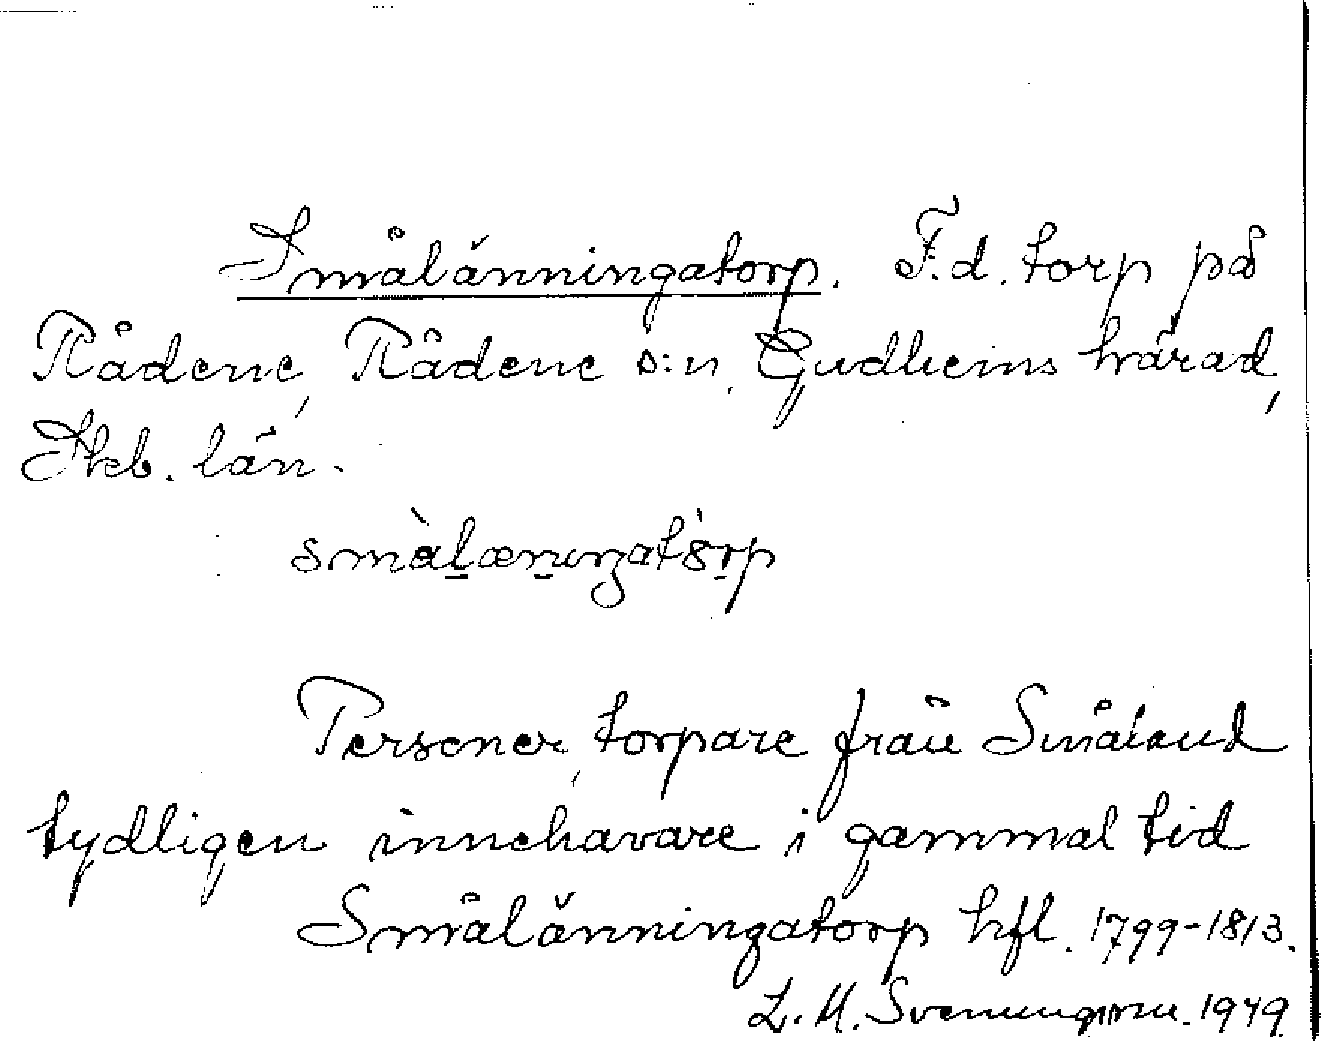 Smålänningatorp. F.d. torp på
Rådene, Rådene s:n, Gudhems härad,
Skb. län.
smàlæniŋatórp
Personer, torpare från Småland
tydligen innehavare i gammal tid
Smålänningatorp hfl. 1799-1813.
L. M. Svenungsson. 1949